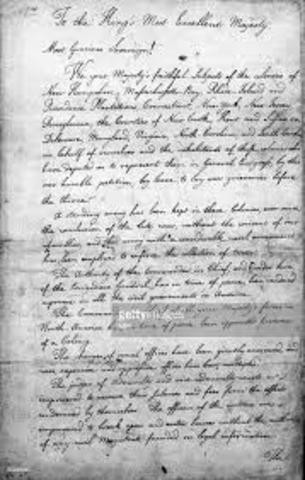 To the King's Most Excellent Majesty
Most Gracious Sovereign!
We your Majesty's faithful Subjects of the Colonies of
New Hampshire, Massachusetts Bay, Rhode Island and
Providence Plantations, Connecticut, New York, New Jersey,
Pennsylvania, the Counties of New Castle, Kent and Sussex on
Delaware, Maryland, Virginia, North Carolina, and South Carolina
in behalf of ourselves and the inhabitants of those colonies who have
been deputed us to represent them in General Congress, by this
our humble petition, beg leave to lay our grievances before
the throne.
A standing army has been kept in these Colonies, ever since
the conclusion of the late war, without the consent of our
assemblies; and this army with a considerable naval armament
has been employed to enforce the collection of taxes.
The Authority of the Commander in Chief, and under him
of the Brigadiers General, has in time of peace, been rendered
supreme in all the civil governments in America.
The Commander
forces in
North America
of peace been appointed Governor
of a Colony.
The charges of usual offices have been greatly increased, and
new, expensive and oppressive offices have been multiplied.
The judges of Admiralty and vice Admiralty courts are
empowered to receive their salaries and fees from the effects
condemned by themselves. The officers of the customs are
empowered to break open and enter houses without the authority
of any civil Magistrate founded on legal information.
The
gettyimages